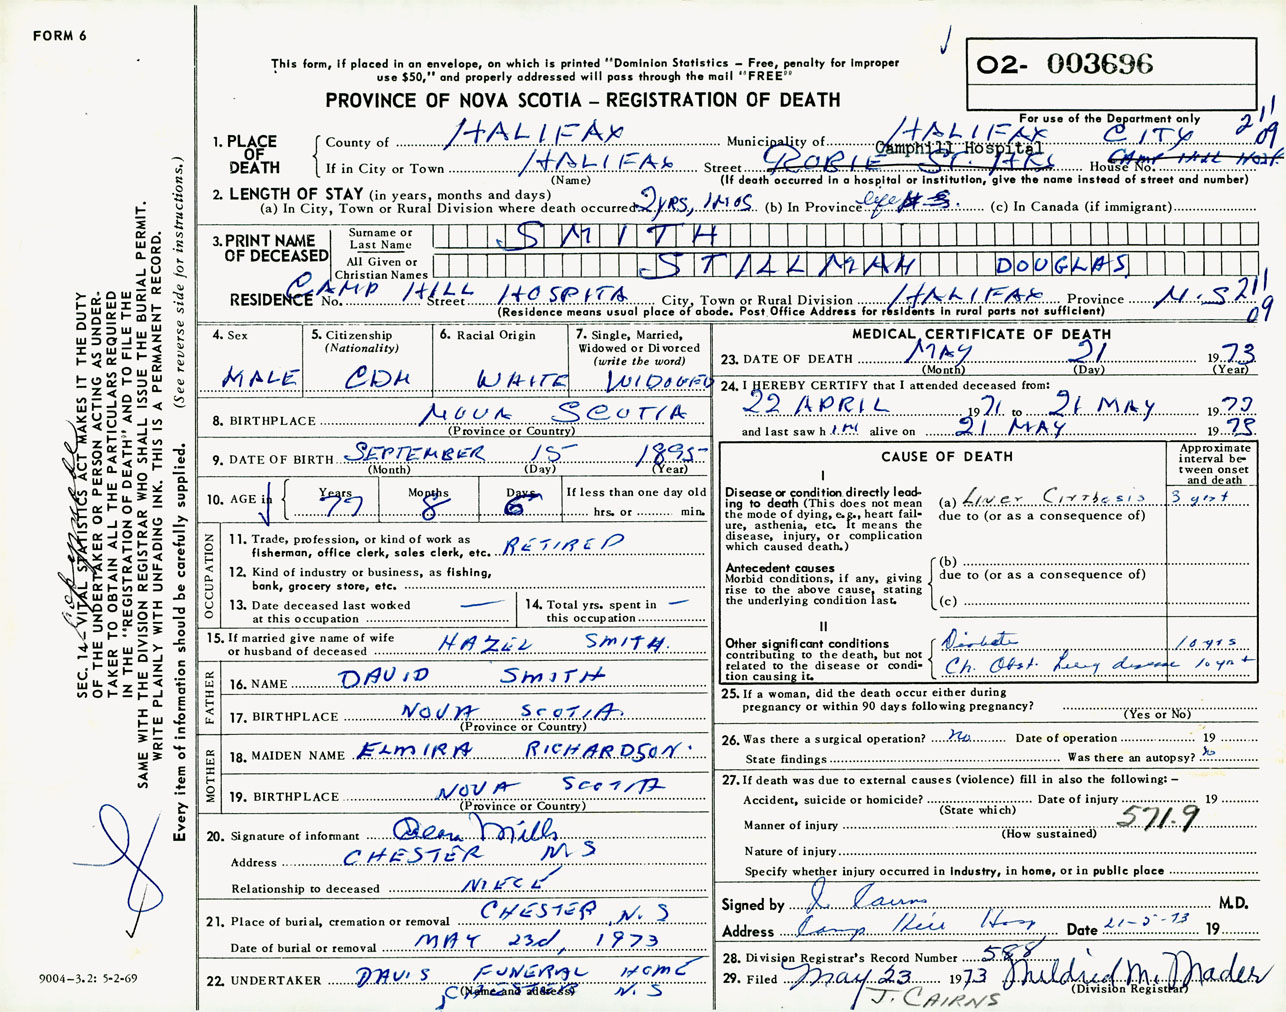 FORM 6
This form, if placed in an envelope, on which is printed "Dominion Statistics – Free, penalty for improper
use $50," and properly addressed will pass through the mail "FREE"
O2- 003696
PROVINCE OF NOVA SCOTIA – REGISTRATION OF DEATH
For use of the Department only
211
09
1. PLACE OF DEATH
County of HALIFAX Municipality of HALIFAX CITY
Camphill Hospital
If in City or Town HALIFAX Street ROBIE ST. House No. CAMP HILL HOSP.
(Name) (If death occurred in a hospital or institution, give the name instead of street and number)
2. LENGTH OF STAY (in years, months and days)
(a) In City, Town or Rural Division where death occurred 2 yrs, 1 mos (b) In Province life (c) In Canada (if immigrant)
3. PRINT NAME OF DECEASED
Surname or Last Name SMITH
All Given or Christian Names STILLMAN DOUGLAS
RESIDENCE No. CAMP HILL Street HOSPITA City, Town or Rural Division HALIFAX Province N.S 211
(Residence means usual place of abode. Post Office Address for residents in rural parts not sufficient) 09
4. Sex MALE
5. Citizenship (Nationality) CDN
6. Racial Origin WHITE
7. Single, Married, Widowed or Divorced (write the word) WIDOWED
8. BIRTHPLACE NOVA SCOTIA
(Province or Country)
9. DATE OF BIRTH SEPTEMBER 15 1895
(Month) (Day) (Year)
10. AGE in Years 77 Months 8 Days 6 If less than one day old
hrs. or min.
OCCUPATION
11. Trade, profession, or kind of work as
fisherman, office clerk, sales clerk, etc. RETIRED
12. Kind of industry or business, as fishing,
bank, grocery store, etc.
13. Date deceased last worked
at this occupation — 
14. Total yrs. spent in
this occupation —
15. If married give name of wife
or husband of deceased HAZEL SMITH.
FATHER
16. NAME DAVID SMITH
17. BIRTHPLACE NOVA SCOTIA.
(Province or Country)
MOTHER
18. MAIDEN NAME ELMIRA RICHARDSON.
19. BIRTHPLACE NOVA SCOTIA
(Province or Country)
20. Signature of informant Mills
Address CHESTER N S
Relationship to deceased NIECE
21. Place of burial, cremation or removal CHESTER, N. S
Date of burial or removal MAY 23d, 1973
22. UNDERTAKER DAVIS FUNERAL HOME
(Name and address) CHESTER N. S
MEDICAL CERTIFICATE OF DEATH
23. DATE OF DEATH MAY 21 1973
(Month) (Day) (Year)
24. I HEREBY CERTIFY that I attended deceased from:
22 APRIL 1971 to 21 MAY 1973
and last saw h IM alive on 21 MAY 1973
CAUSE OF DEATH
Approximate interval between onset and death
I
Disease or condition directly leading to death (This does not mean
the mode of dying, e.g., heart failure, asthenia, etc. It means the
disease, injury, or complication
which caused death.)
(a) Liver Cirrhosis 3 yrs
due to (or as a consequence of)
Antecedent causes
Morbid conditions, if any, giving
rise to the above cause, stating
the underlying condition last.
(b)
due to (or as a consequence of)
(c)
II
Other significant conditions
contributing to the death, but not
related to the disease or condition causing it.
Diabetes 10 yrs
Ch. Obst. Lung disease 10 yrs +
25. If a woman, did the death occur either during
pregnancy or within 90 days following pregnancy?
(Yes or No)
26. Was there a surgical operation? No Date of operation 19
State findings Was there an autopsy? No
27. If death was due to external causes (violence) fill in also the following: –
Accident, suicide or homicide? Date of injury 19
(State which)
Manner of injury 571.9
(How sustained)
Nature of injury
Specify whether injury occurred in industry, in home, or in public place
Signed by J. Cairns M.D.
Address Camp Hill Hosp Date 21-5-73 19
28. Division Registrar's Record Number 588
29. Filed May 23 1973 Mildred M. Mader
(Division Registrar)
J. CAIRNS
SEC. 14 – VITAL STATISTICS ACT MAKES IT THE DUTY
OF THE UNDERTAKER OR PERSON ACTING AS UNDER-
TAKER TO OBTAIN ALL THE PARTICULARS REQUIRED
IN THE "REGISTRATION OF DEATH" AND TO FILE THE
SAME WITH THE DIVISION REGISTRAR WHO SHALL ISSUE THE BURIAL PERMIT.
WRITE PLAINLY WITH UNFADING INK. THIS IS A PERMANENT RECORD.
Every item of information should be carefully supplied. (See reverse side for instructions.)
9004-3.2: 5-2-69